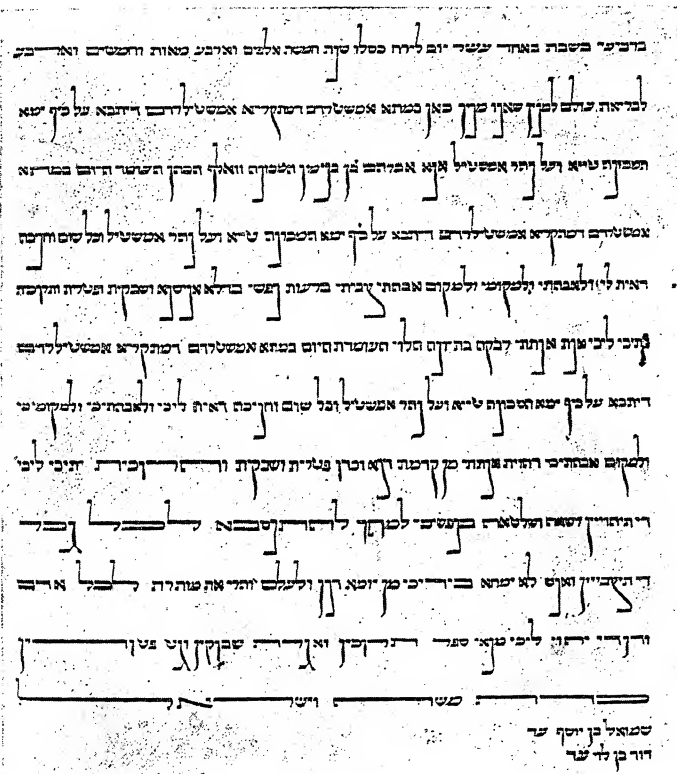 ברביעי בשבת באחד עשר יום לירח כסלו שנת חמשת אלפים וארבע מאות וחמשים וארבע
לבריאת עולם למנין שאנו מנין כאן במתא אמשטלדם דמתקריא אמשטילרדם דיתבא על כיף ימא
המכונה טייא ועל נהר אמשטיל אנא אברהם בן בנימין המכונה וואלף הכהן העומד היום במתא
אמשטלדם דמתקריא אמשטילרדם דיתבא על כיף ימא המכונה טייא ועל נהר אמשטיל וכל שום וחניכה
דאית לי ולאבהתי ולמקומי ולמקום אבהתי צביתי ברעות נפשי בדלא אניסנא ושבקית ופטרית ותרוכית
יתיכי ליכי אנת אנתתי רבקה בת יונה הלוי העומדת היום במתא אמשטלדם דמתקריא אמשטילרדם
דיתבא על כיף ימא המכונה טייא ועל נהר אמשטיל וכל שום וחניכה דאית ליכי ולאבהתיכי ולמקומיכי
ולמקום אבהתיכי דהוית אנתתי מן קדמת דנא וכדו פטרית ושבקית ותרוכית יתיכי ליכי
די תיהוייין רשאה ושלטאה בנפשיכי למהך להתנסבא לכל גבר
די תיצבייין ואנש לא ימחא בידיכי מן יומא דנן ולעלם והרי את מותרת לכל אדם
ודן די יהוי ליכי מנאי ספר תרוכין ואגרת שבוקין וגט פטורין
כדת משה וישראל
שמואל בן יוסף עד
דוד בן עד